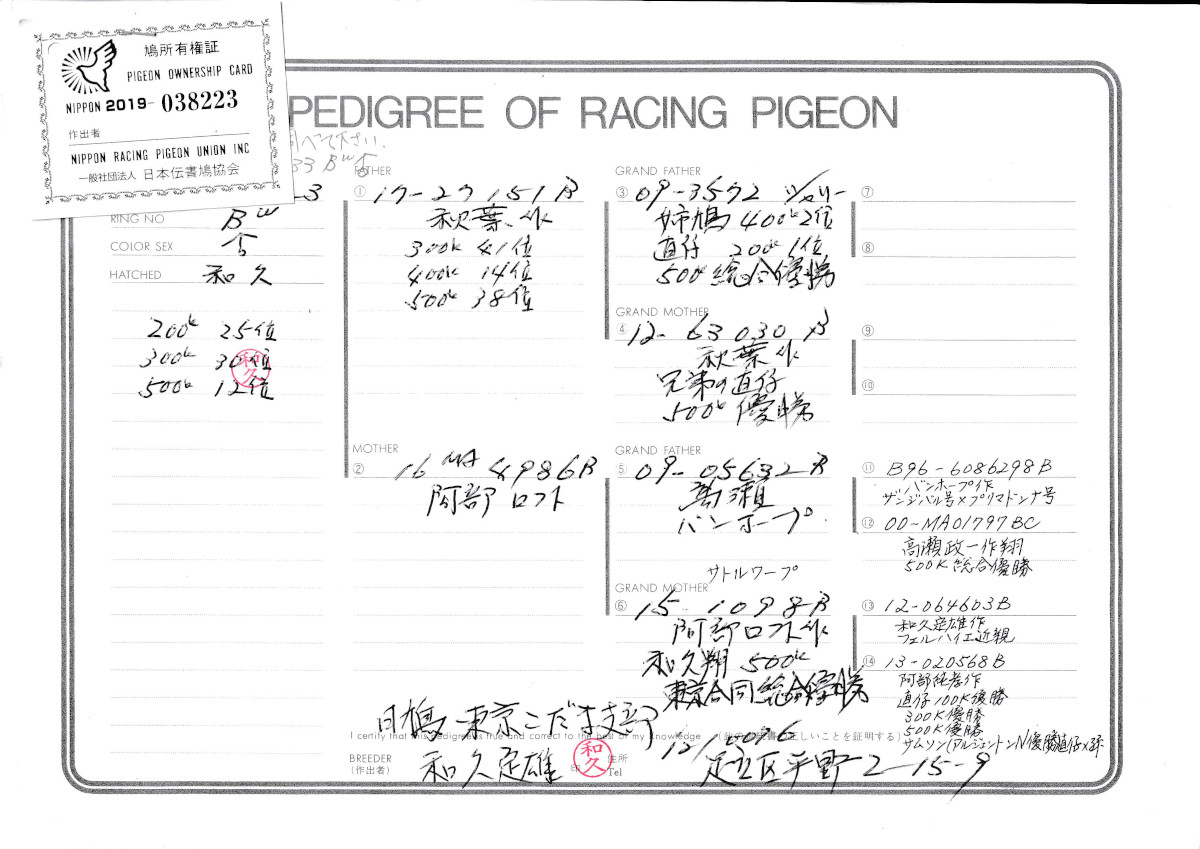 鳩所有権証
PIGEON OWNERSHIP CARD
NIPPON 2019-038223
作出者
NIPPON RACING PIGEON UNION INC
一般社団法人 日本伝書鳩協会
PEDIGREE OF RACING PIGEON
べて下さい.
33 BW
RING NO
BW
COLOR SEX
HATCHED
和久
200K 25位
300K 30位
500K 12位
和久
FATHER
① 17-27151 B
秋葉作
300K 41位
400K 14位
500K 38位
MOTHER
② 16 MA 4986B
阿部ロフト
GRAND FATHER
③ 09-3572 シルバー
姉鳩 400K 2位
直仔 200K 1位
500K 総合優勝
GRAND MOTHER
④ 12-63030 B
秋葉作
兄弟の直仔
500K 優勝
GRAND FATHER
⑤ 09-05632 B
高瀬
バンホープ
サトルワープ
GRAND MOTHER
⑥ 15-1098-B
阿部ロフト作
和久翔 500K
東京合同総合優勝
⑦
⑧
⑨
⑩
⑪ B96-6086298B
バンホープ作
ザンジバル号×プリマドンナ号
⑫ 00-MA01797BC
高瀬政一作翔
500K総合優勝
⑬ 12-064603B
和久定雄作
フェルハイエ近親
⑭ 13-020568B
阿部 作
直仔100K優勝
300K優勝
500K優勝
サムソン(アルジェントンN優勝直仔×孫
日鳩 東京こだま支部
I certify that this pedigree is true and correct to the best of my knowledge
しいことを証明する)
BREEDER
(作出者)
和久定雄
印
和久
住所
Tel
足立区平野2-15-9